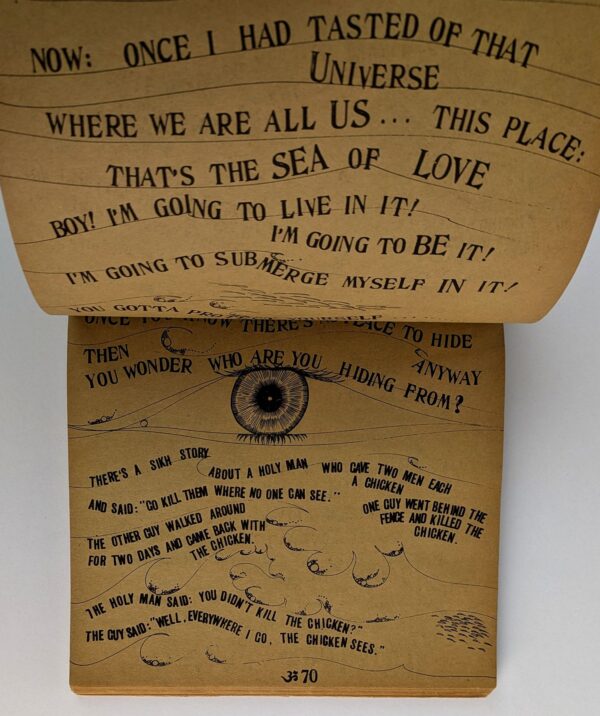 NOW: ONCE I HAD TASTED OF THAT
UNIVERSE
WHERE WE ARE ALL US... THIS PLACE:
THAT'S THE SEA OF LOVE
BOY! I'M GOING TO LIVE IN IT!
I'M GOING TO BE IT!
I'M GOING TO SUBMERGE MYSELF IN IT!
YOU GOTTA
ONCE THERE'S PLACE TO HIDE
THEN ANYWAY
YOU WONDER WHO ARE YOU HIDING FROM?
THERE'S A SIKH STORY
ABOUT A HOLY MAN WHO GAVE TWO MEN EACH
A CHICKEN
AND SAID: "GO KILL THEM WHERE NO ONE CAN SEE."
ONE GUY WENT BEHIND THE
FENCE AND KILLED THE
CHICKEN.
THE OTHER GUY WALKED AROUND
FOR TWO DAYS AND CAME BACK WITH
THE CHICKEN.
THE HOLY MAN SAID: YOU DIDN'T KILL THE CHICKEN?"
THE GUY SAID: "WELL, EVERYWHERE I GO, THE CHICKEN SEES."
ॐ 70